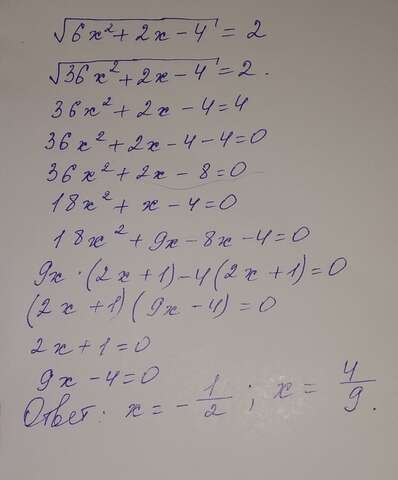 √6x²+2x-4 = 2
√36x²+2x-4 = 2.
36x²+2x-4=4
36x²+2x-4-4=0
36x²+2x-8=0
18x²+x-4=0
18x²+9x-8x-4=0
9x·(2x+1)-4(2x+1)=0
(2x+1)(9x-4)=0
2x+1=0
9x-4=0
Ответ: x=-1/2; x=4/9.